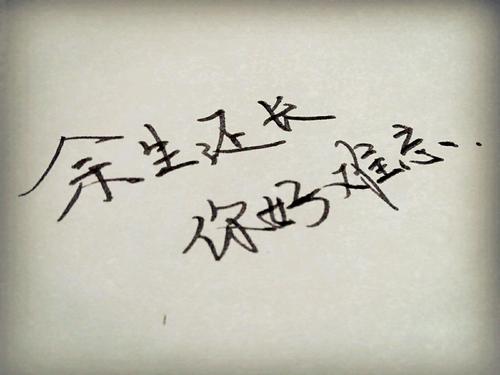 余生还长
你好难忘..